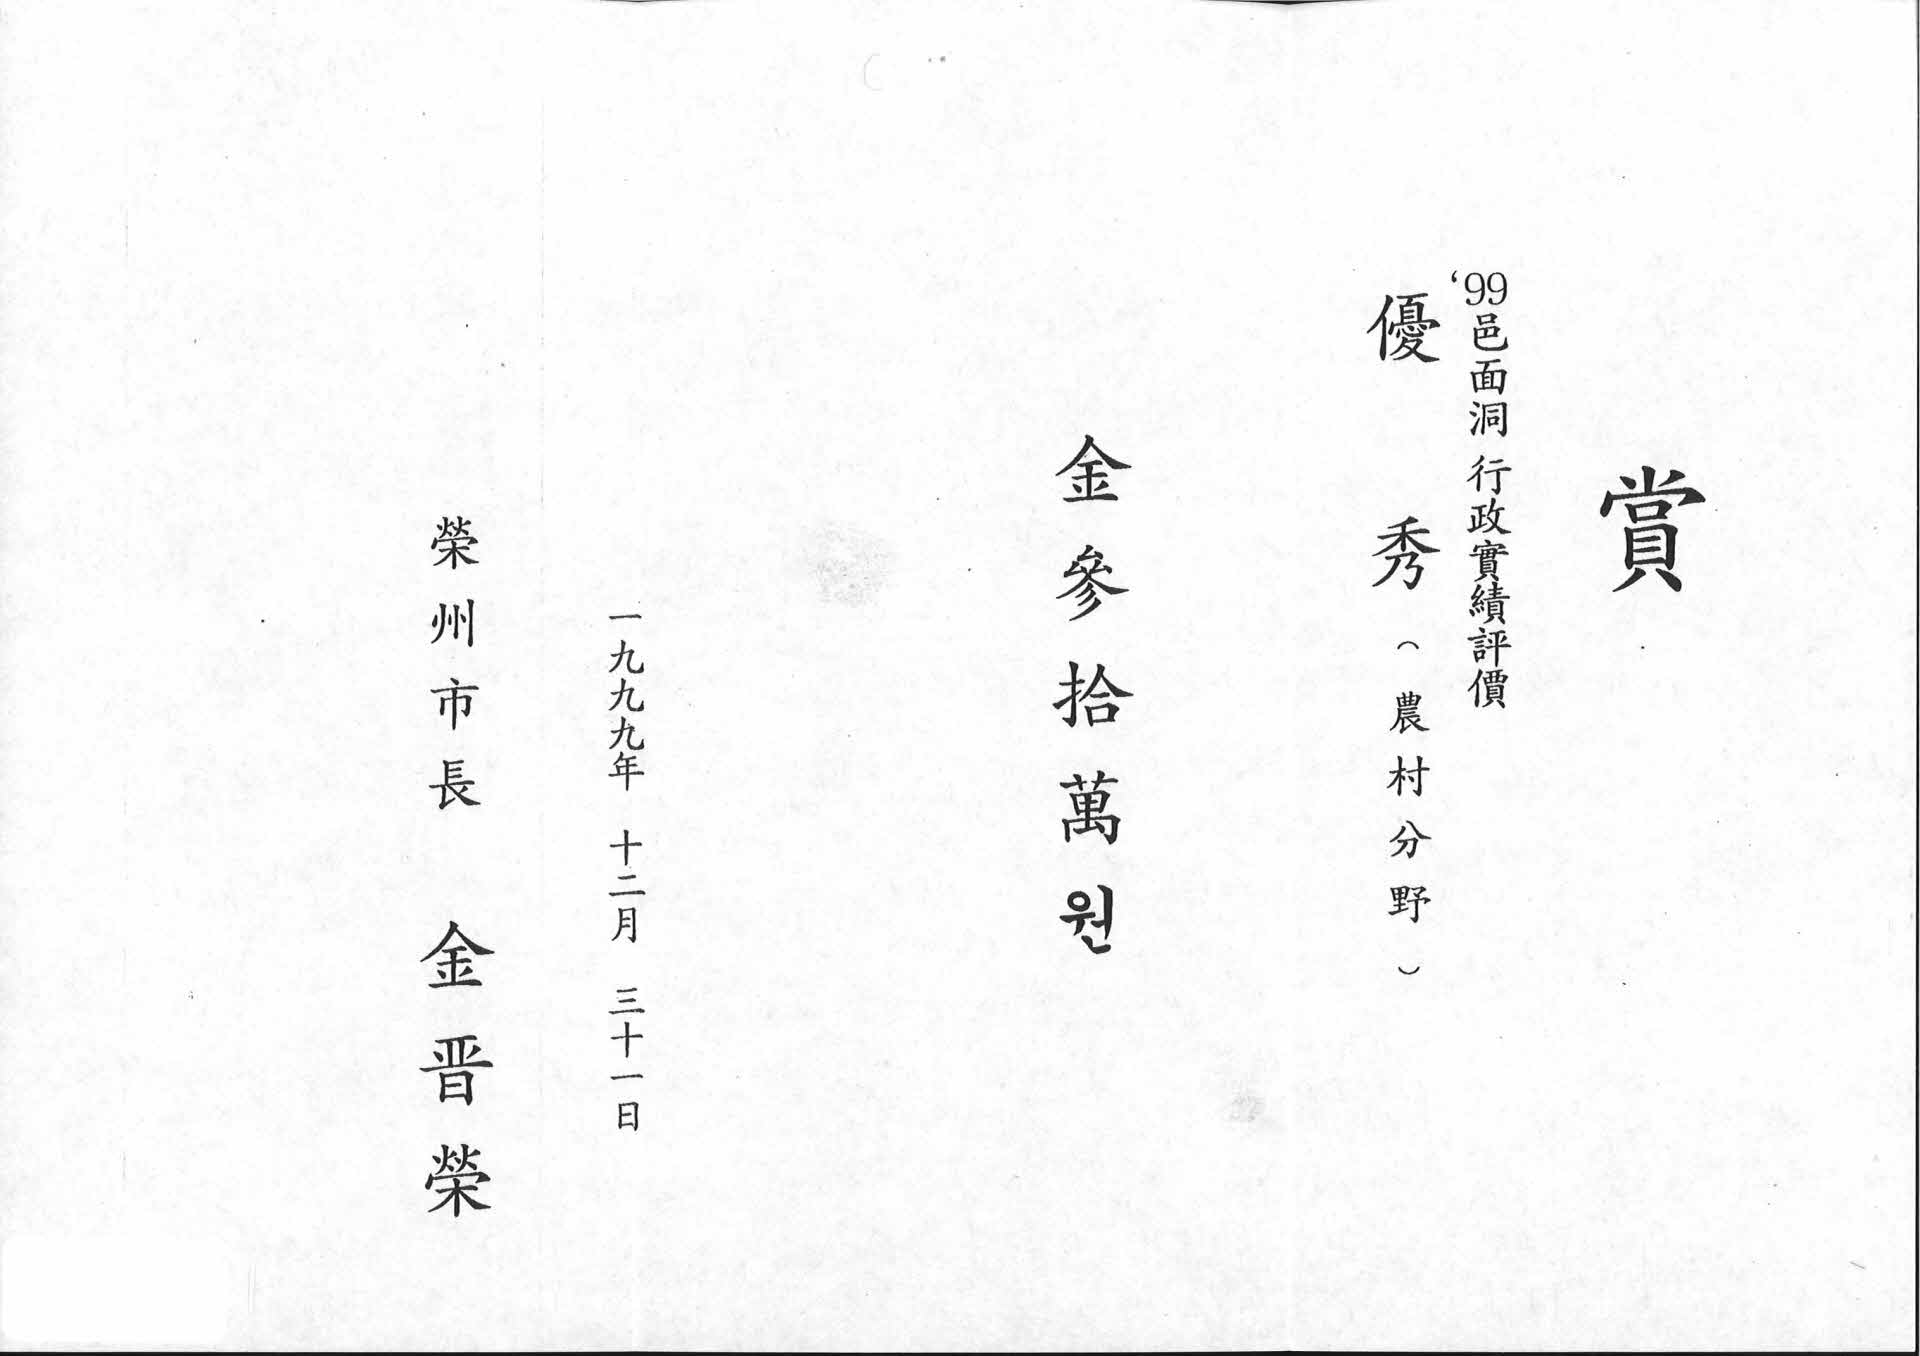 賞
‘99邑面洞 行政實績評價
優秀(農村分野)
金參拾萬원
一九九九年 十二月 三十一日
榮州市長 金晋榮